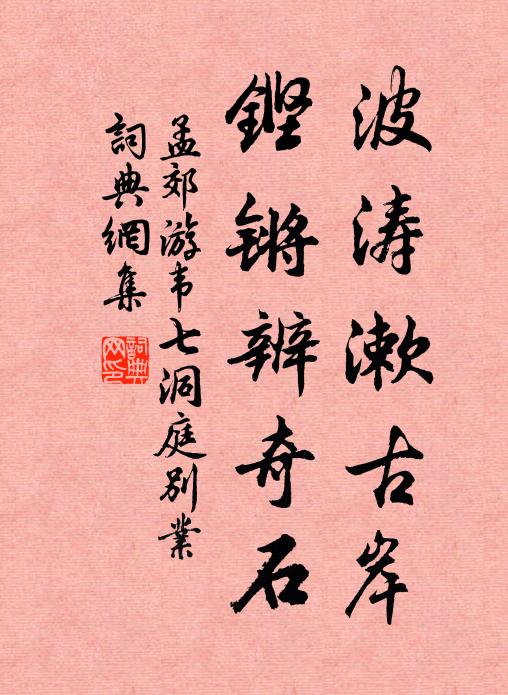 波涛漱古岸
鏗锵辨奇石
孟郊游韦七洞庭别業
詞典網集